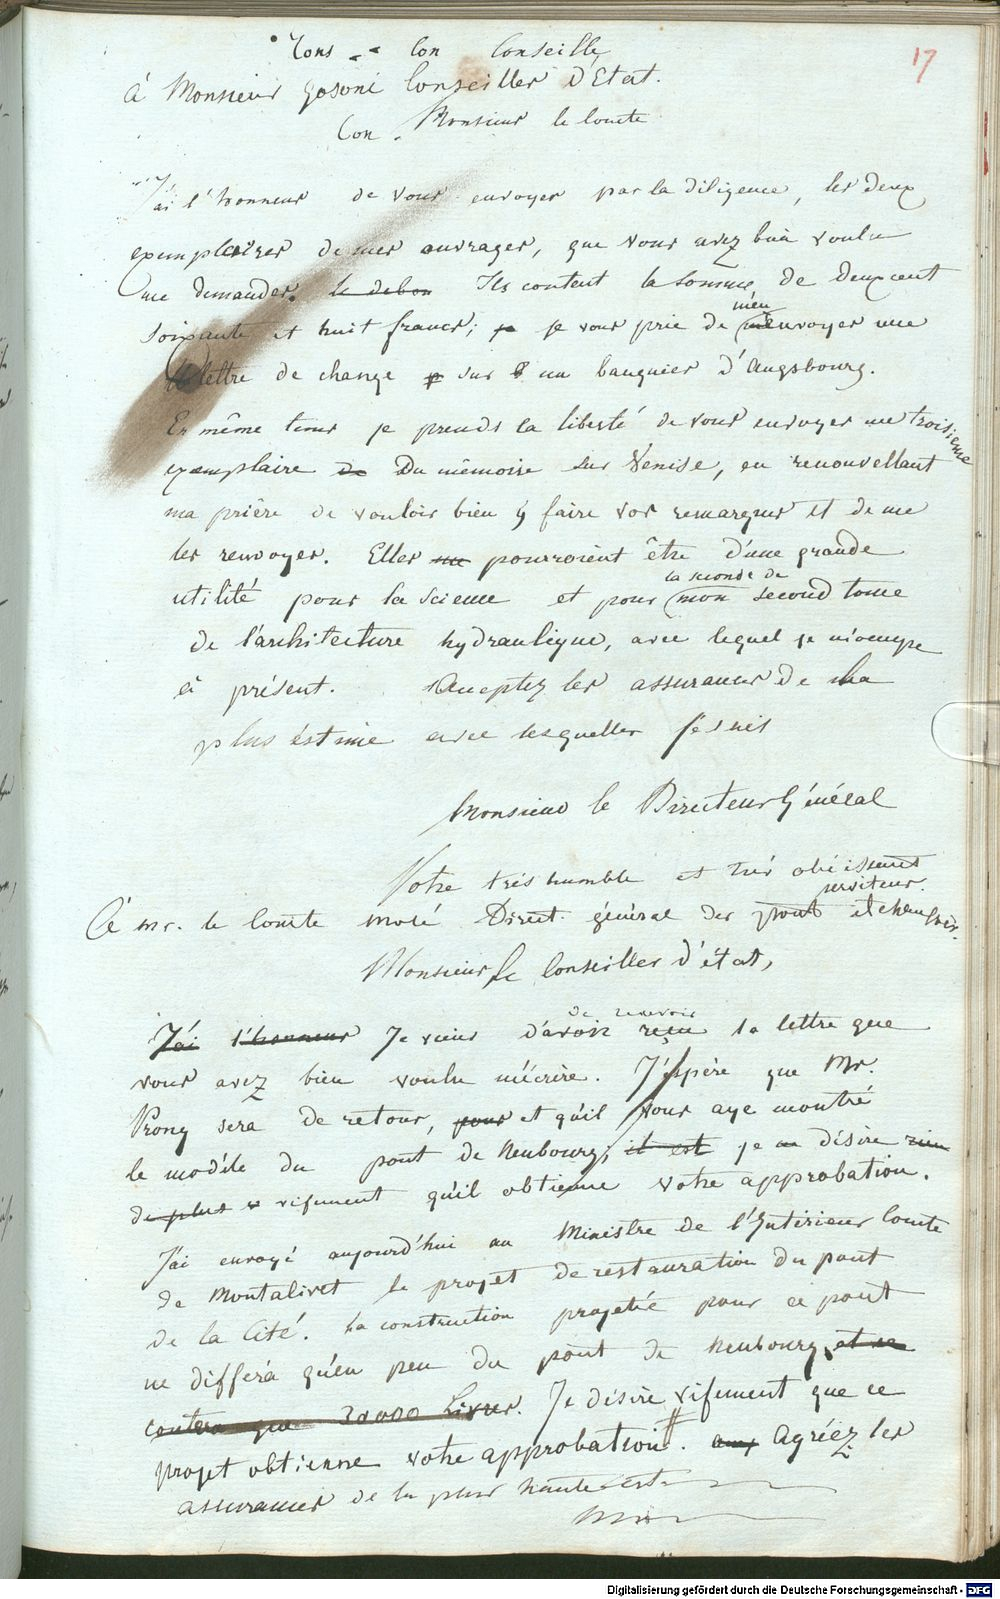 17
Con Conseille
à Monsieur gosoni Conseiller d'Etat.
Con. Monsieur le Comte
J'ai l'honneur de vous envoyer par la diligence, les deux
exemplaires de mes ouvrages, que vous avez bien voulu
me demander. Ils coutent la somme de deux cent
soixante et huit francs; je vous prie de m'en envoyer une
lettre de change sur un banquier d'Augsbourg.
En même tems je prends la liberté de vous envoyer une troisieme
exemplaire de Du mémoire sur Venise, en renouvellant
ma prière de vouloir bien y faire vos remarques et de me
les renvoyer. Elles pourroient être d'une grande
la seconde de
utilité pour la science et pour mon second tome
de l'architecture hydraulique, avec lequel je m'occupe
à présent. Acceptez les assurances de la
plus estime avec lesquelles je suis
Monsieur le Directeur Général
Votre très humble et très obéissant
serviteur.
à mr. le Comte Molé Direct. général des pont et chaussées.
Monsieur le Conseiller d'état,
de recevoir
J'ai l'honneur Je viens d'avoir reçu la lettre que
vous avez bien voulu m'écrire. J'espère que Mr.
Prony sera de retour, pour et qu'il vous aye montré
le modéle du pont de Neubourg; il est je désire rien
de plus vifement qu'il obtienne votre approbation.
J'ai envoyé aujourd'hui au Ministre de l'Intérieur Comte
de Montalivet le projet de restauration du pont
de la Cité. La construction projetée pour ce pont
ne differa qu'en peu du pont de Neubourg, et ne
coutera que 30000 Livres. Je désire vifement que ce
projet obtienne votre approbation. Agréez les
assurances de la plus haute est.